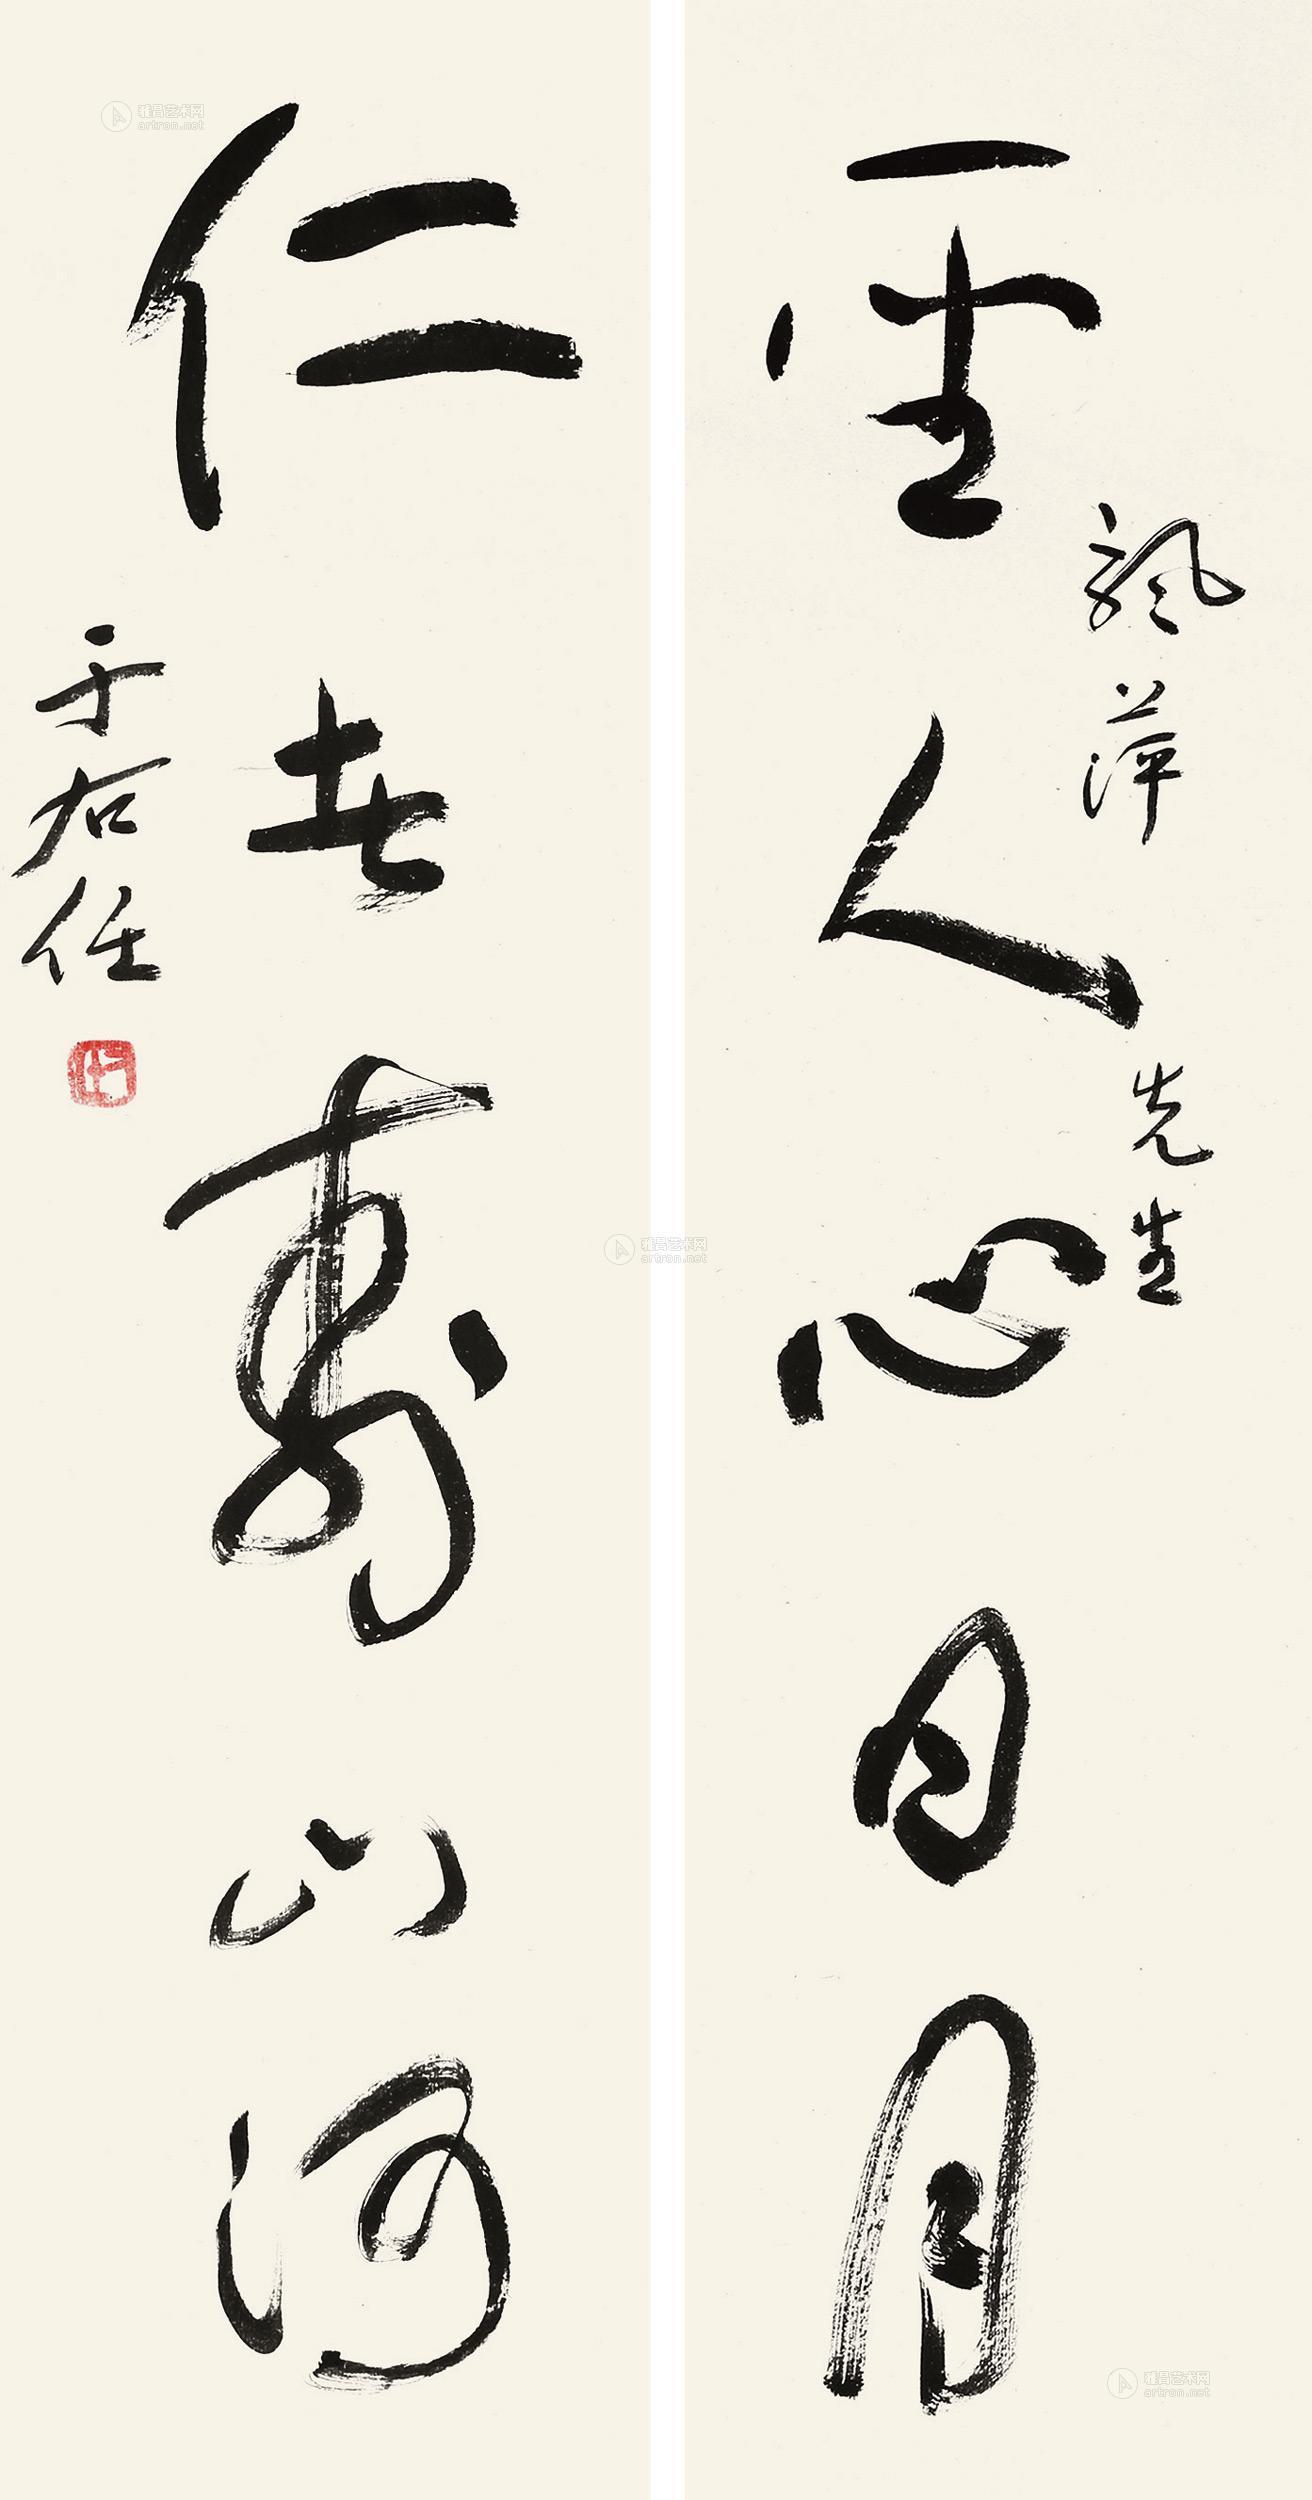 聖人心日月
飄萍先生
仁者壽山河
于右任
雅昌艺术网
artron.net
雅昌艺术网
artron.net
雅昌艺术网
artron.net